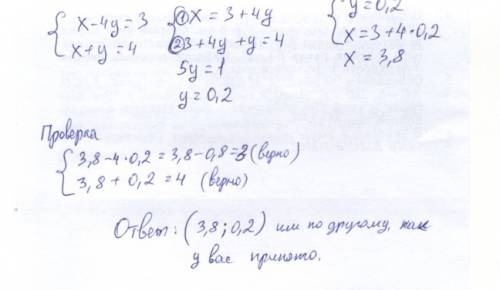 x-4y=3
x+y=4
① x=3+4y
② 3+4y+y=4
5y=1
y=0,2
y=0,2
x=3+4·0,2
x=3,8
Проверка
3,8-4·0,2=3,8-0,8=3 (верно)
3,8+0,2=4 (верно)
Ответ: (3,8; 0,2) или по другому, как
у вас принято.